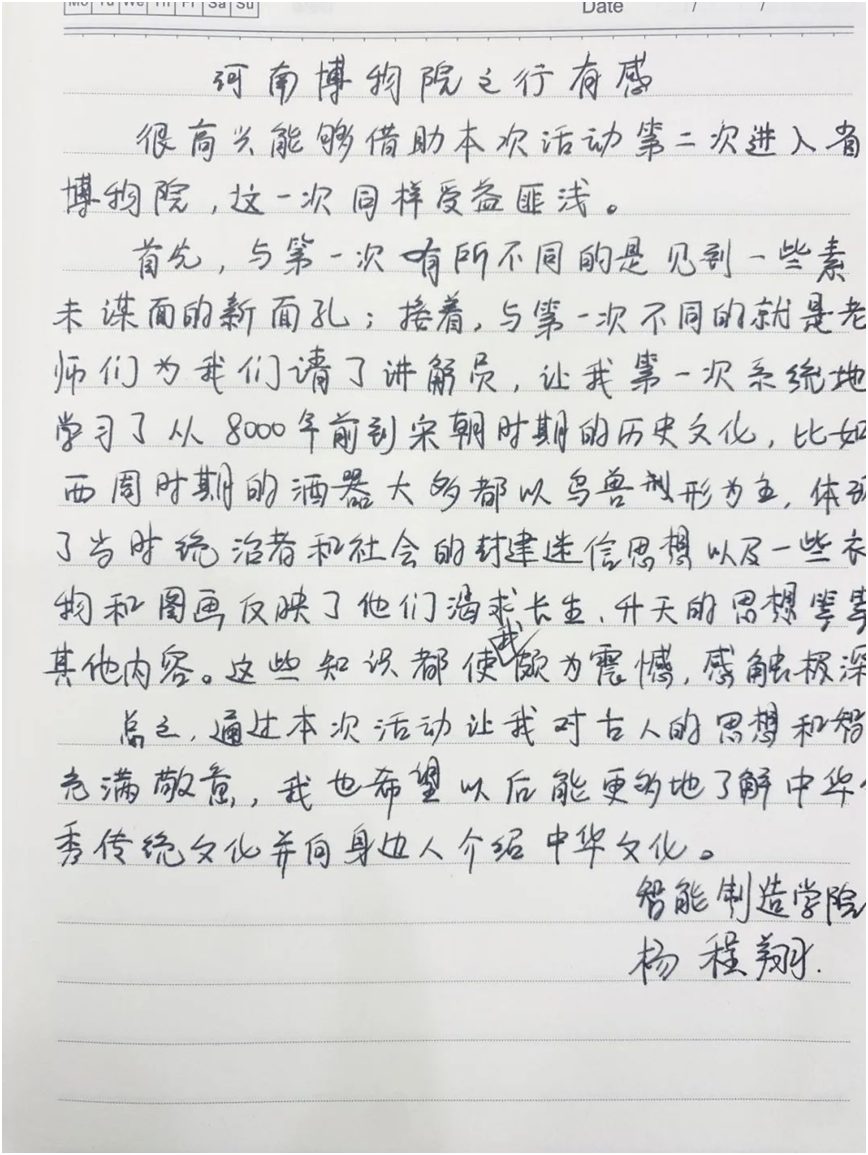 Mo Tu We Th Fr Sa Su
Date / /
河南博物院之行有感
很高兴能够借助本次活动第二次进入省
博物院，这一次同样受益匪浅。
首先，与第一次有所不同的是见到一些素
未谋面的新面孔；接着，与第一次不同的就是老
师们为我们请了讲解员，让我第一次系统地
学习了从8000年前到宋朝时期的历史文化，比如
西周时期的酒器大多都以鸟兽型形为主，体现
了当时统治者和社会的封建迷信思想以及一些衣
物和图画反映了他们渴求长生、升天的思想等等
其他内容。这些知识都使我颇为震憾，感触极深
总之，通过本次活动让我对古人的思想和智
充满敬意，我也希望以后能更多地了解中华
秀传统文化并向身边人介绍中华文化。
智能制造学院
杨程翔.